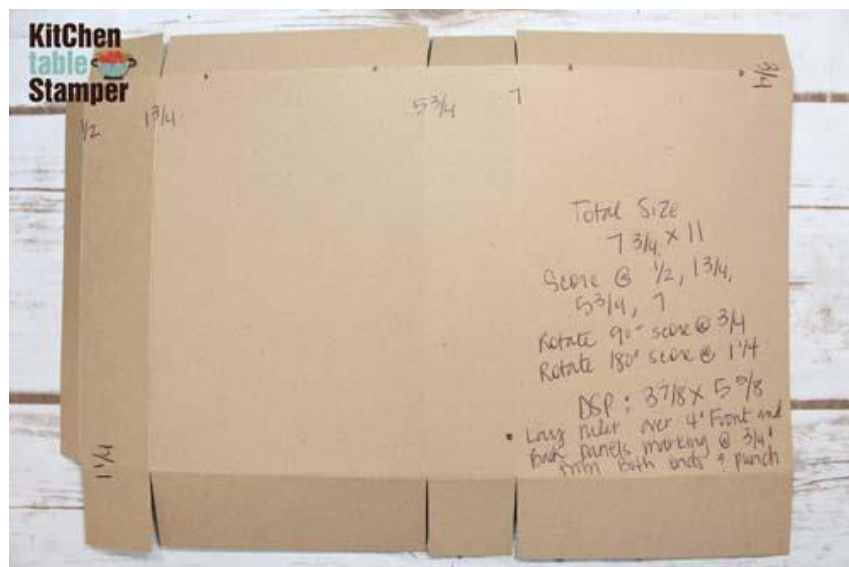 KitChen
table
Stamper
3/4
1/2
1 3/4
5 3/4
7
Total Size
7 3/4 x 11
Score @ 1/2, 1 3/4,
5 3/4, 7
Rotate 90° score @ 3/4
Rotate 180° score @ 1 1/4
DSP: 3 7/8 x 5 5/8
Lay ruler over 4" Front and
Back panels marking @ 3/4"
from both ends & punch
1 1/4